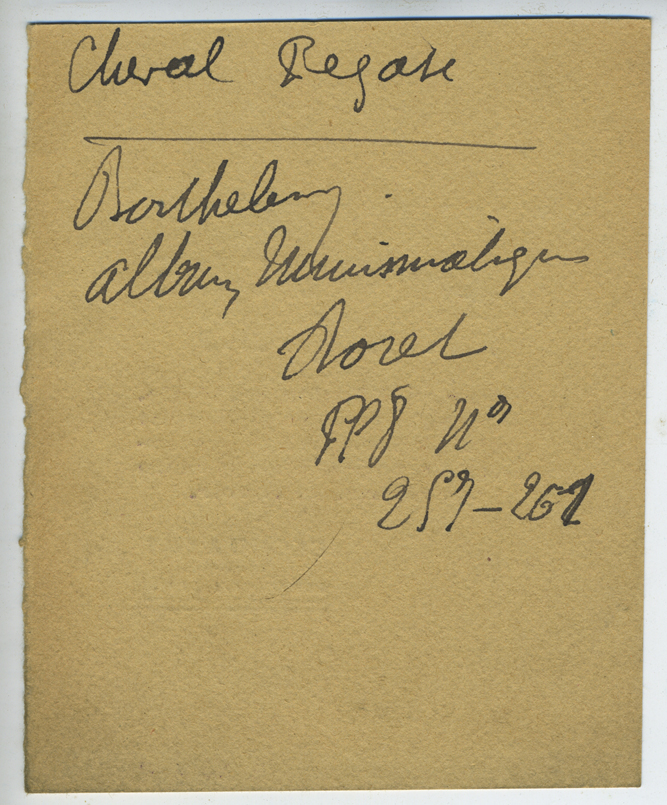 Cheval Pegase
Barthelemy.
album Numismatique
Roret
Pl 8 Nos
257-261